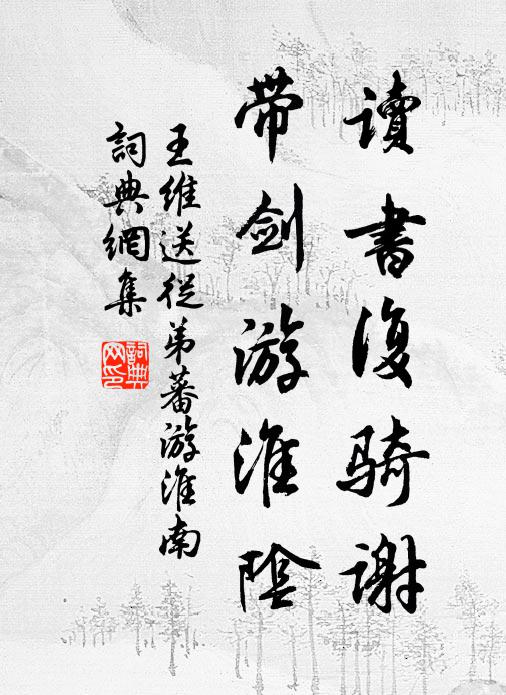 讀書復騎謝
帶劍游淮陰
王維送從弟蕃游淮南
詞典網集
詞典网印